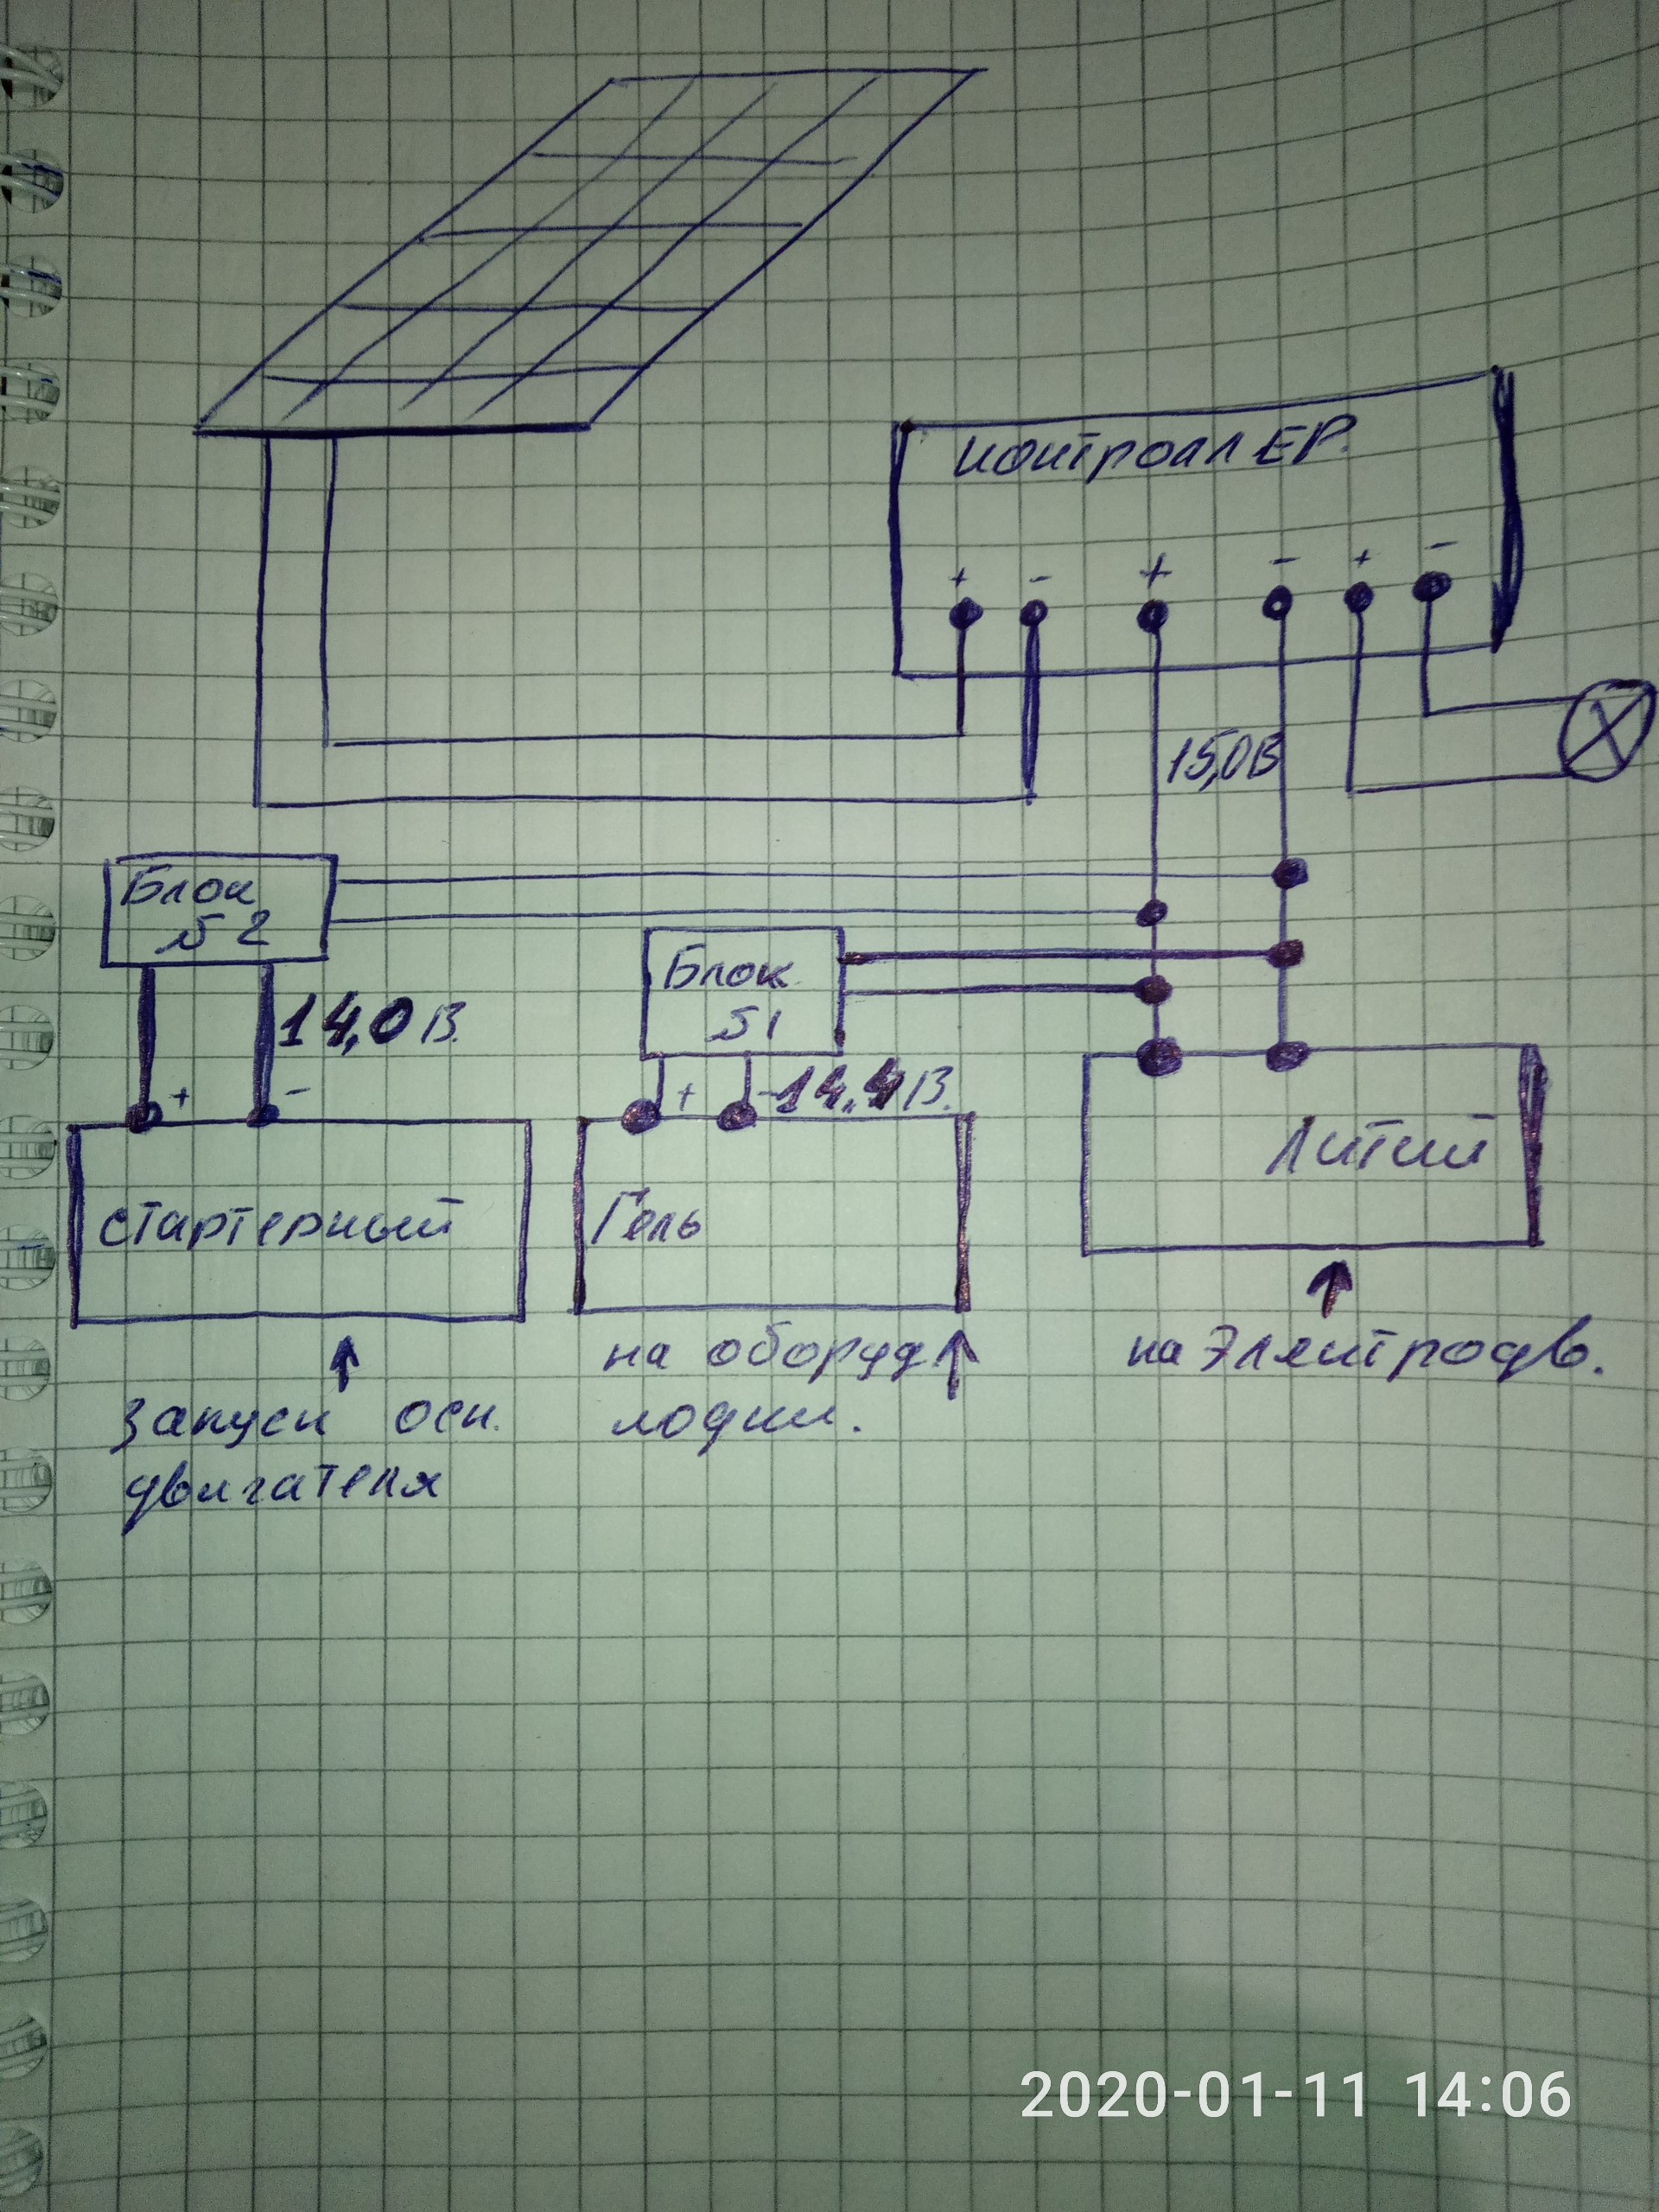 контроллЕР.
+ - + - + -
15,0В
Блок
№2
Блок
№1
14,0 В.
+ -
+ - 14.4В.
Литий
стартерный
Гель
на оборуд
лодки.
на Электродв.
Запуск осн.
двигателя
2020-01-11 14:06